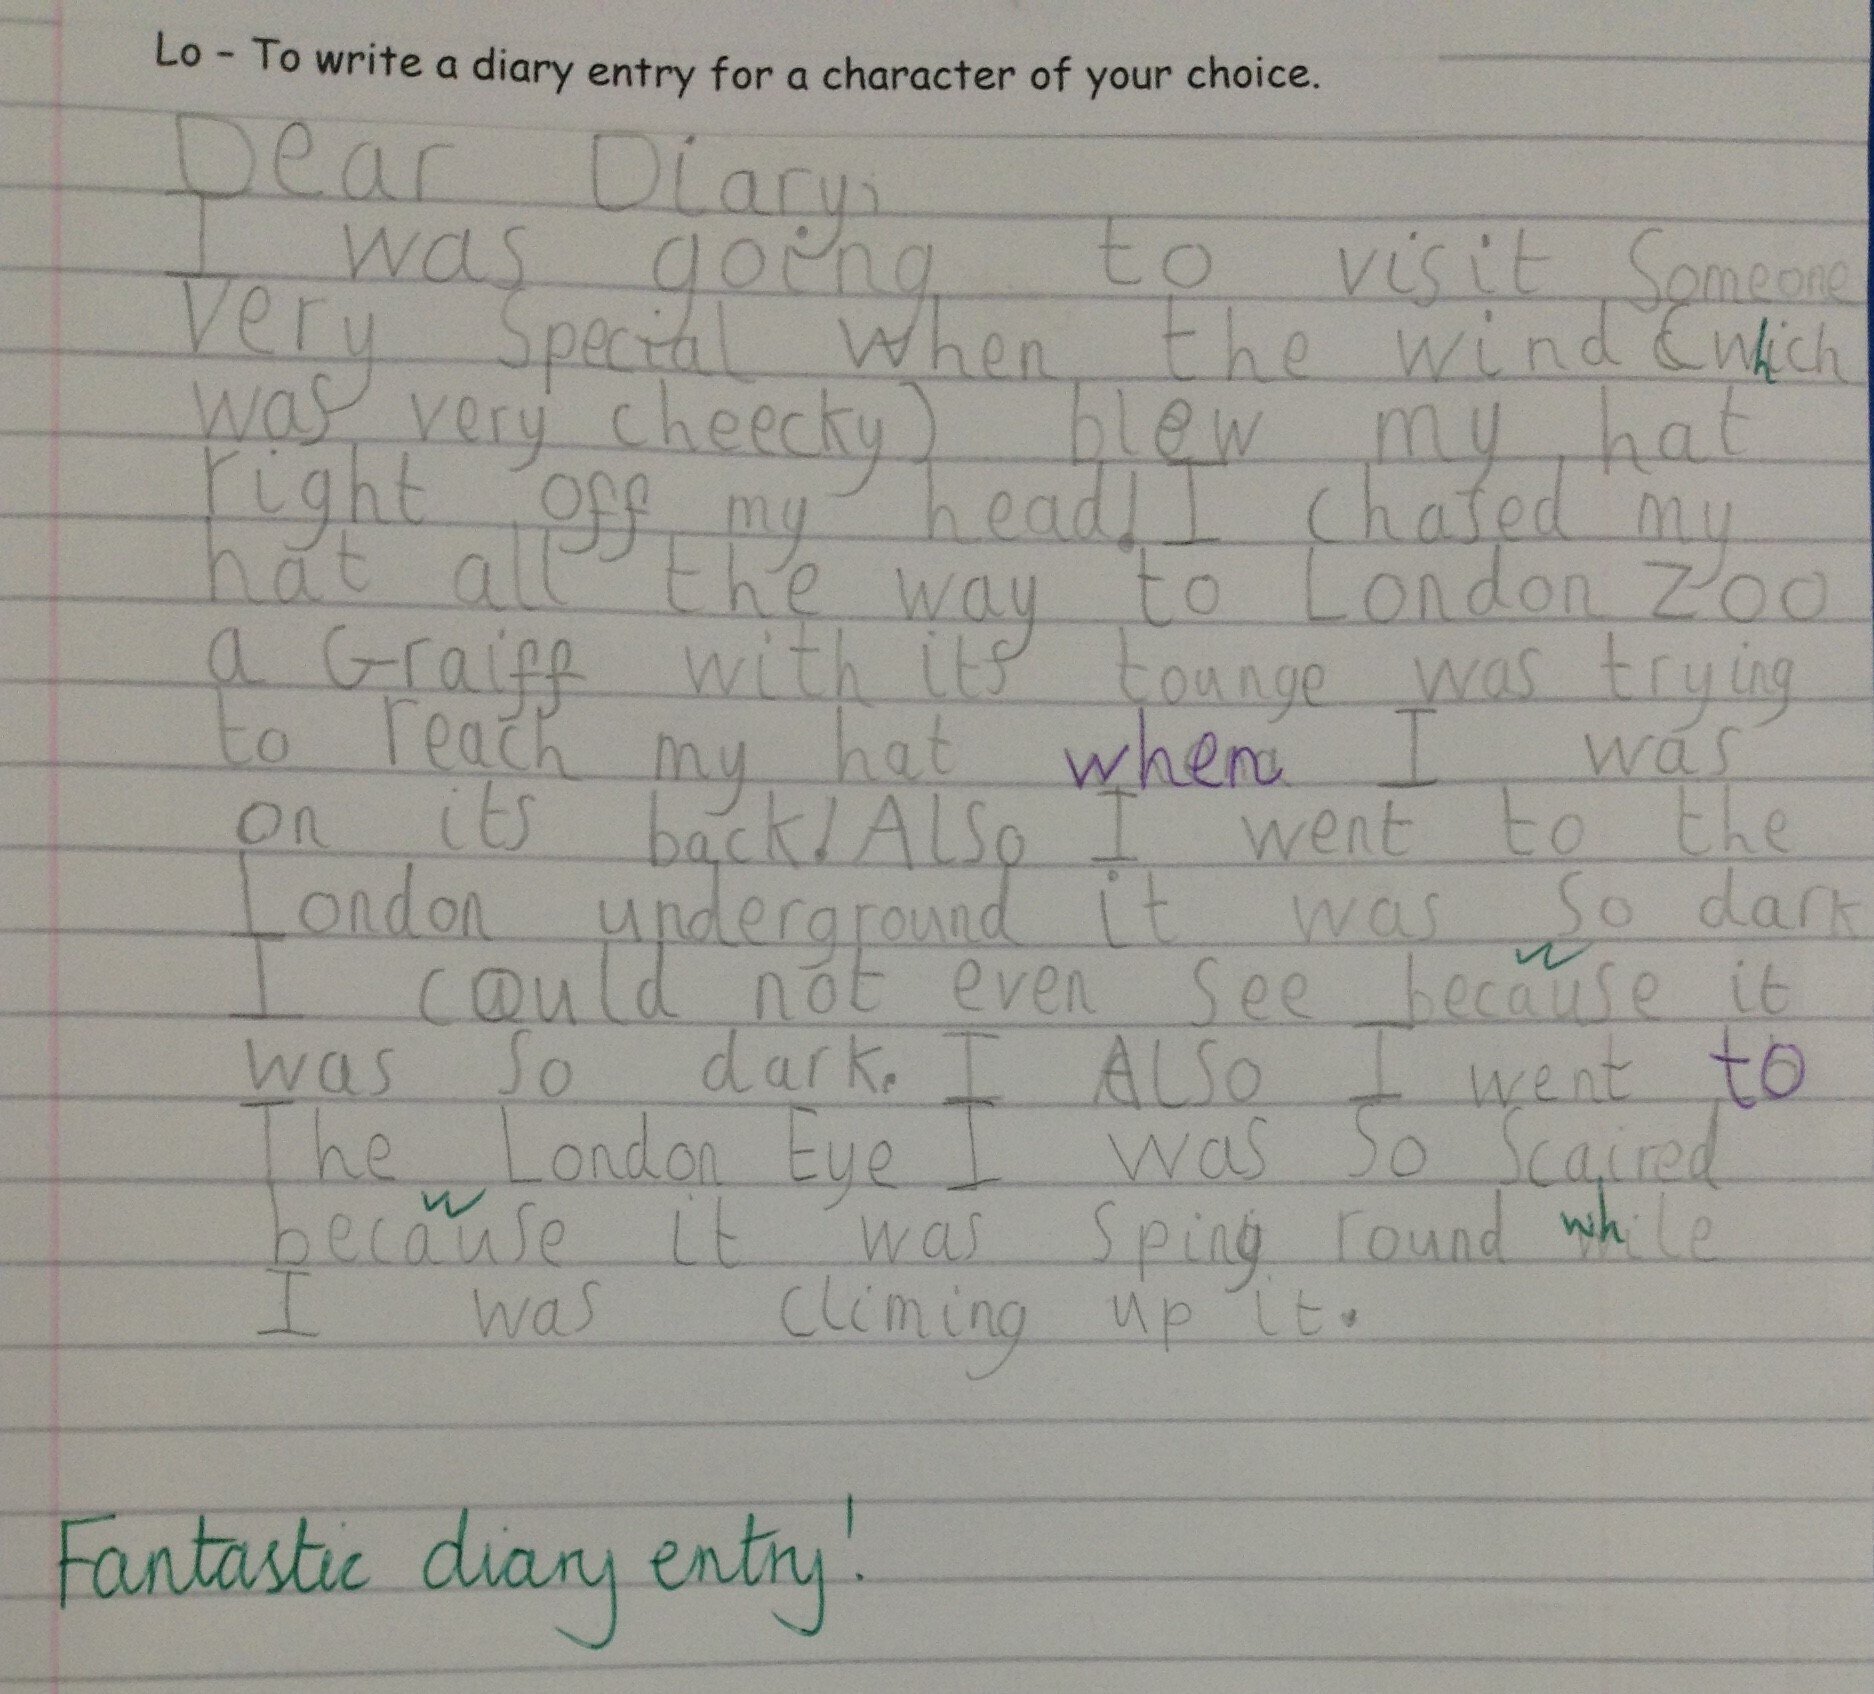 Lo - To write a diary entry for a character of your choice.
Dear Diary,
I was going to visit Someone
very special when the wind (which
was very cheecky) blew my hat
right off my head! I chased my
hat all the way to London Zoo
a Graiff with its tounge was trying
to reach my hat when I was
on its back! Also I went to the
London underground it was so dark
I could not even see because it
was so dark. I Also I went to
The London Eye I was so scaired
because it was sping round while
I was climing up it.
Fantastic diary entry!